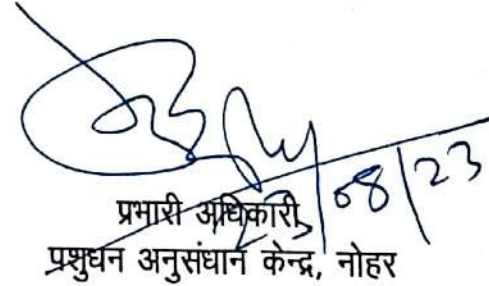 23/08/23
प्रभारी अधिकारी
पशुधन अनुसंधान केन्द्र, नोहर